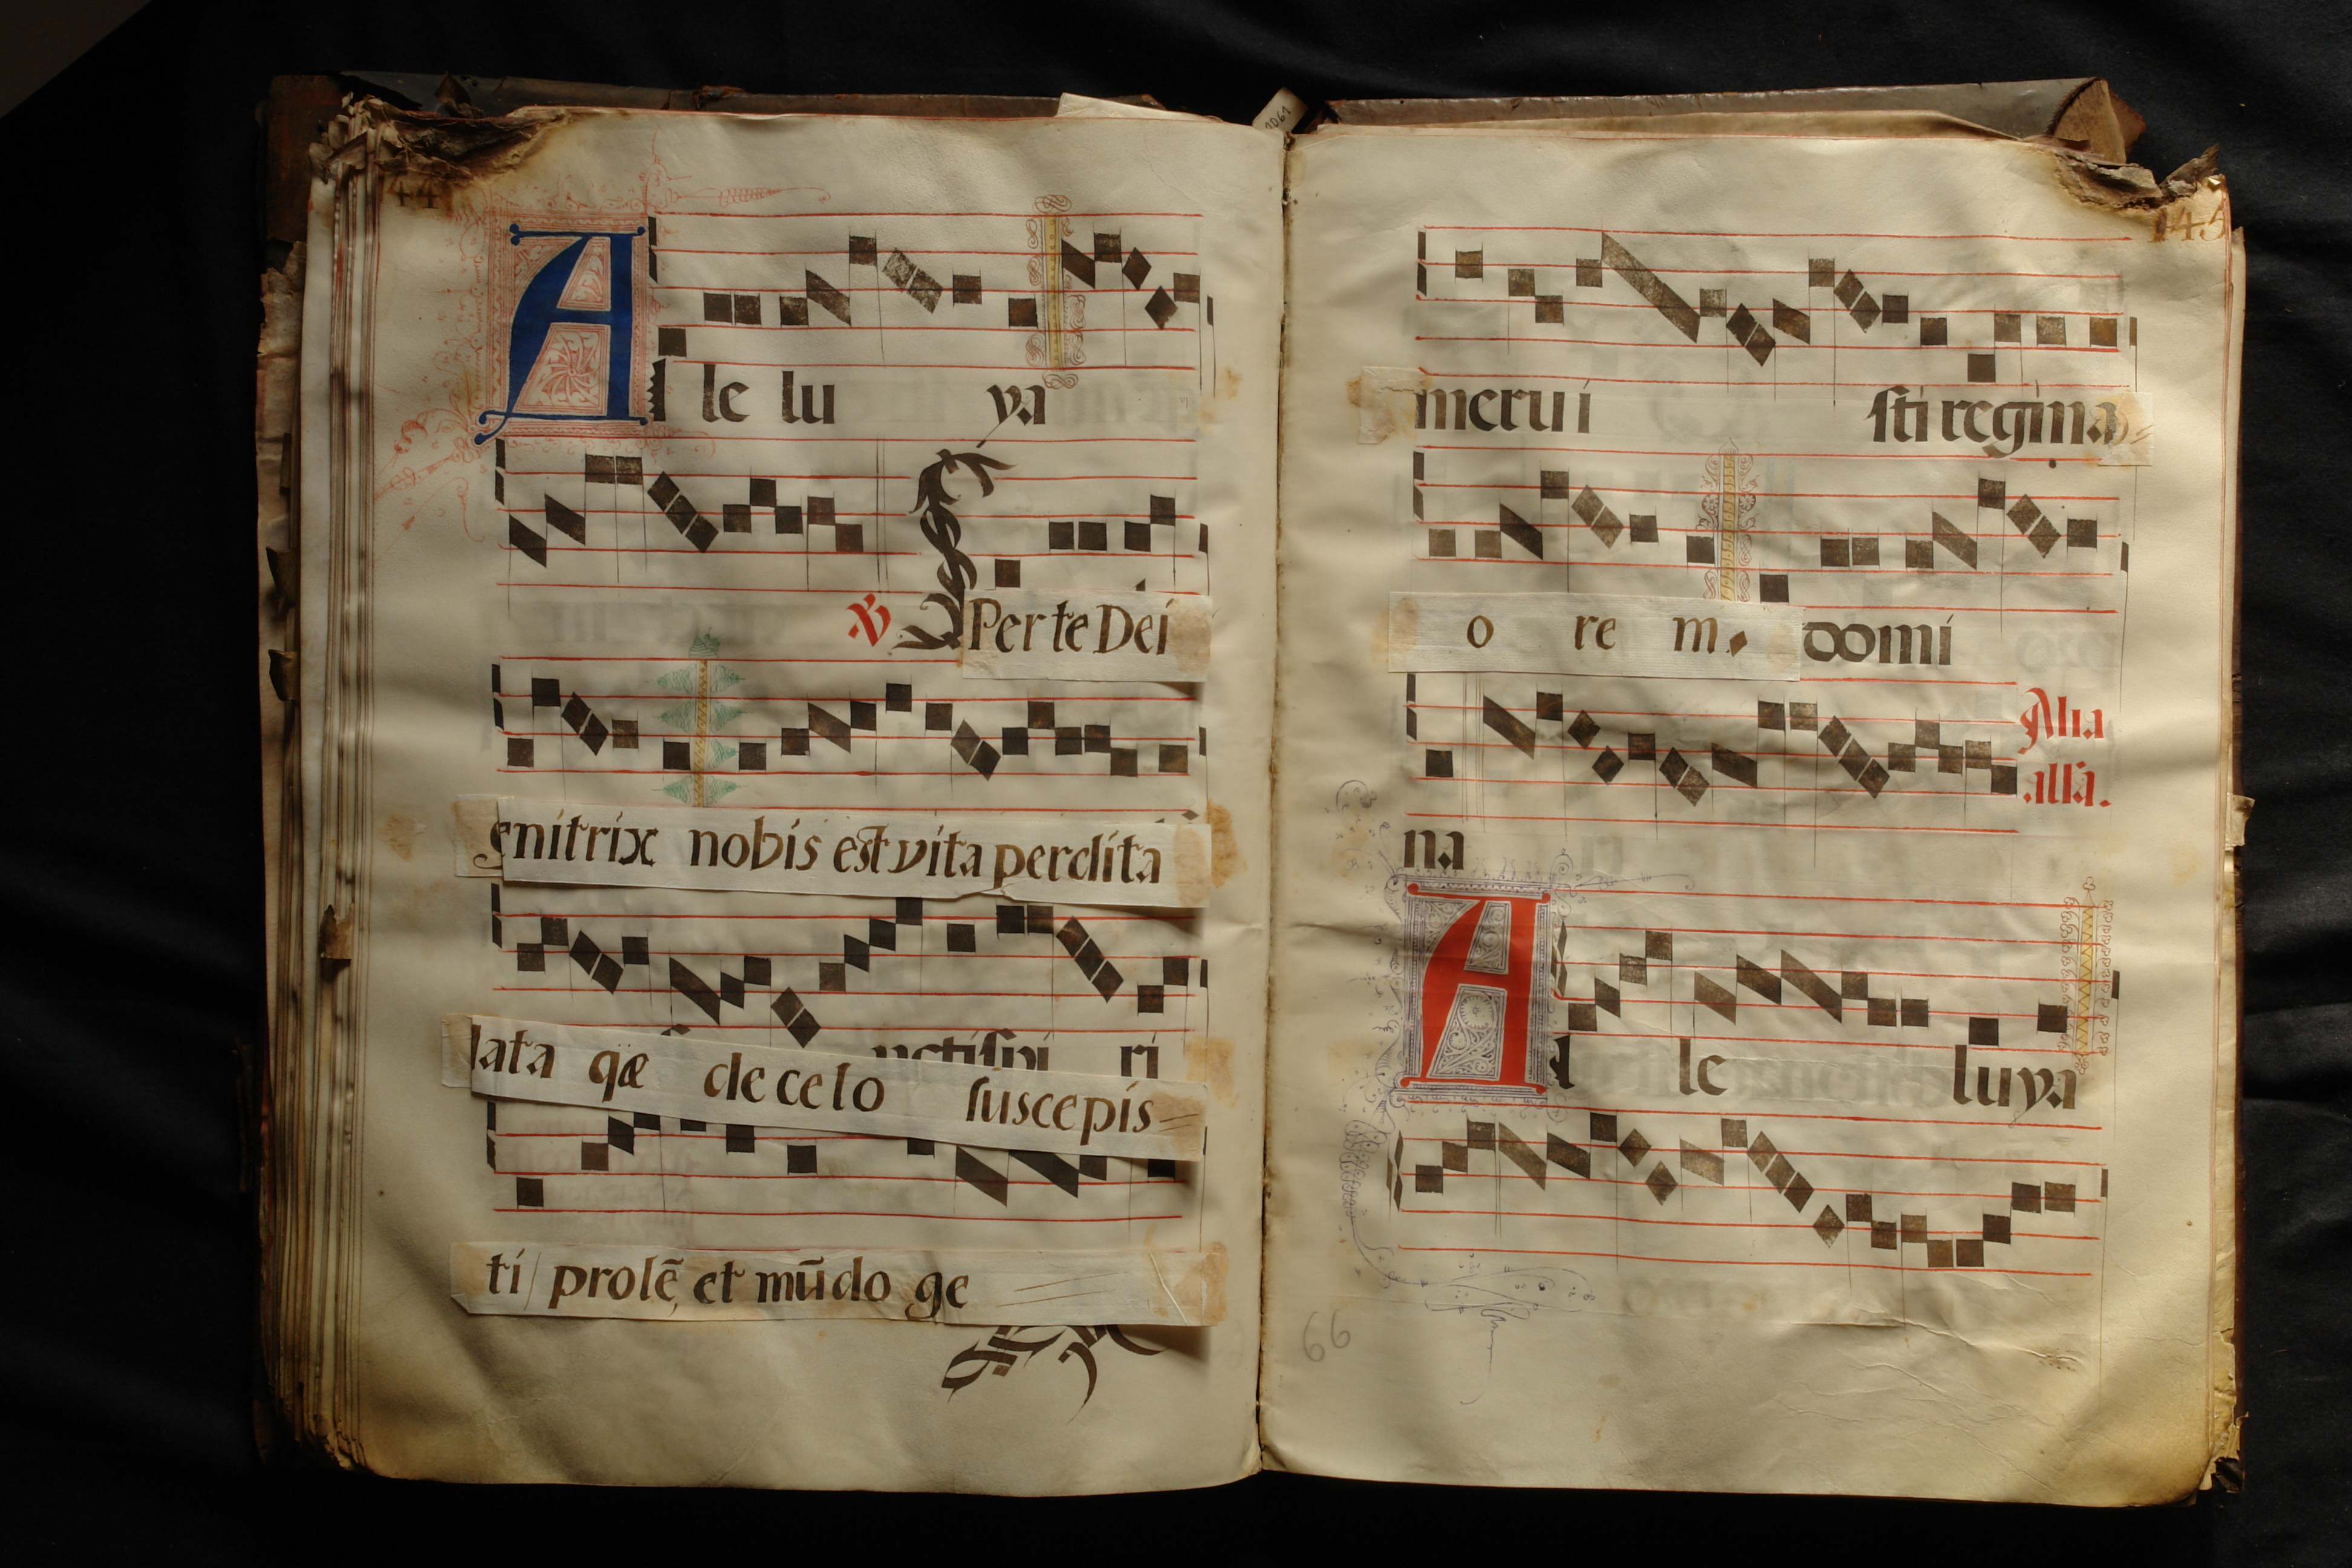 44
Al le lu ya
℣ Per te Dei
genitrix nobis est vita perdita
data qæ de celo suscepis=
nctispi ri
ti prolē, et mūdo ge
1061
145
merui sti regina
o re m. domi
Alia
alľa.
na
Al le luya
66